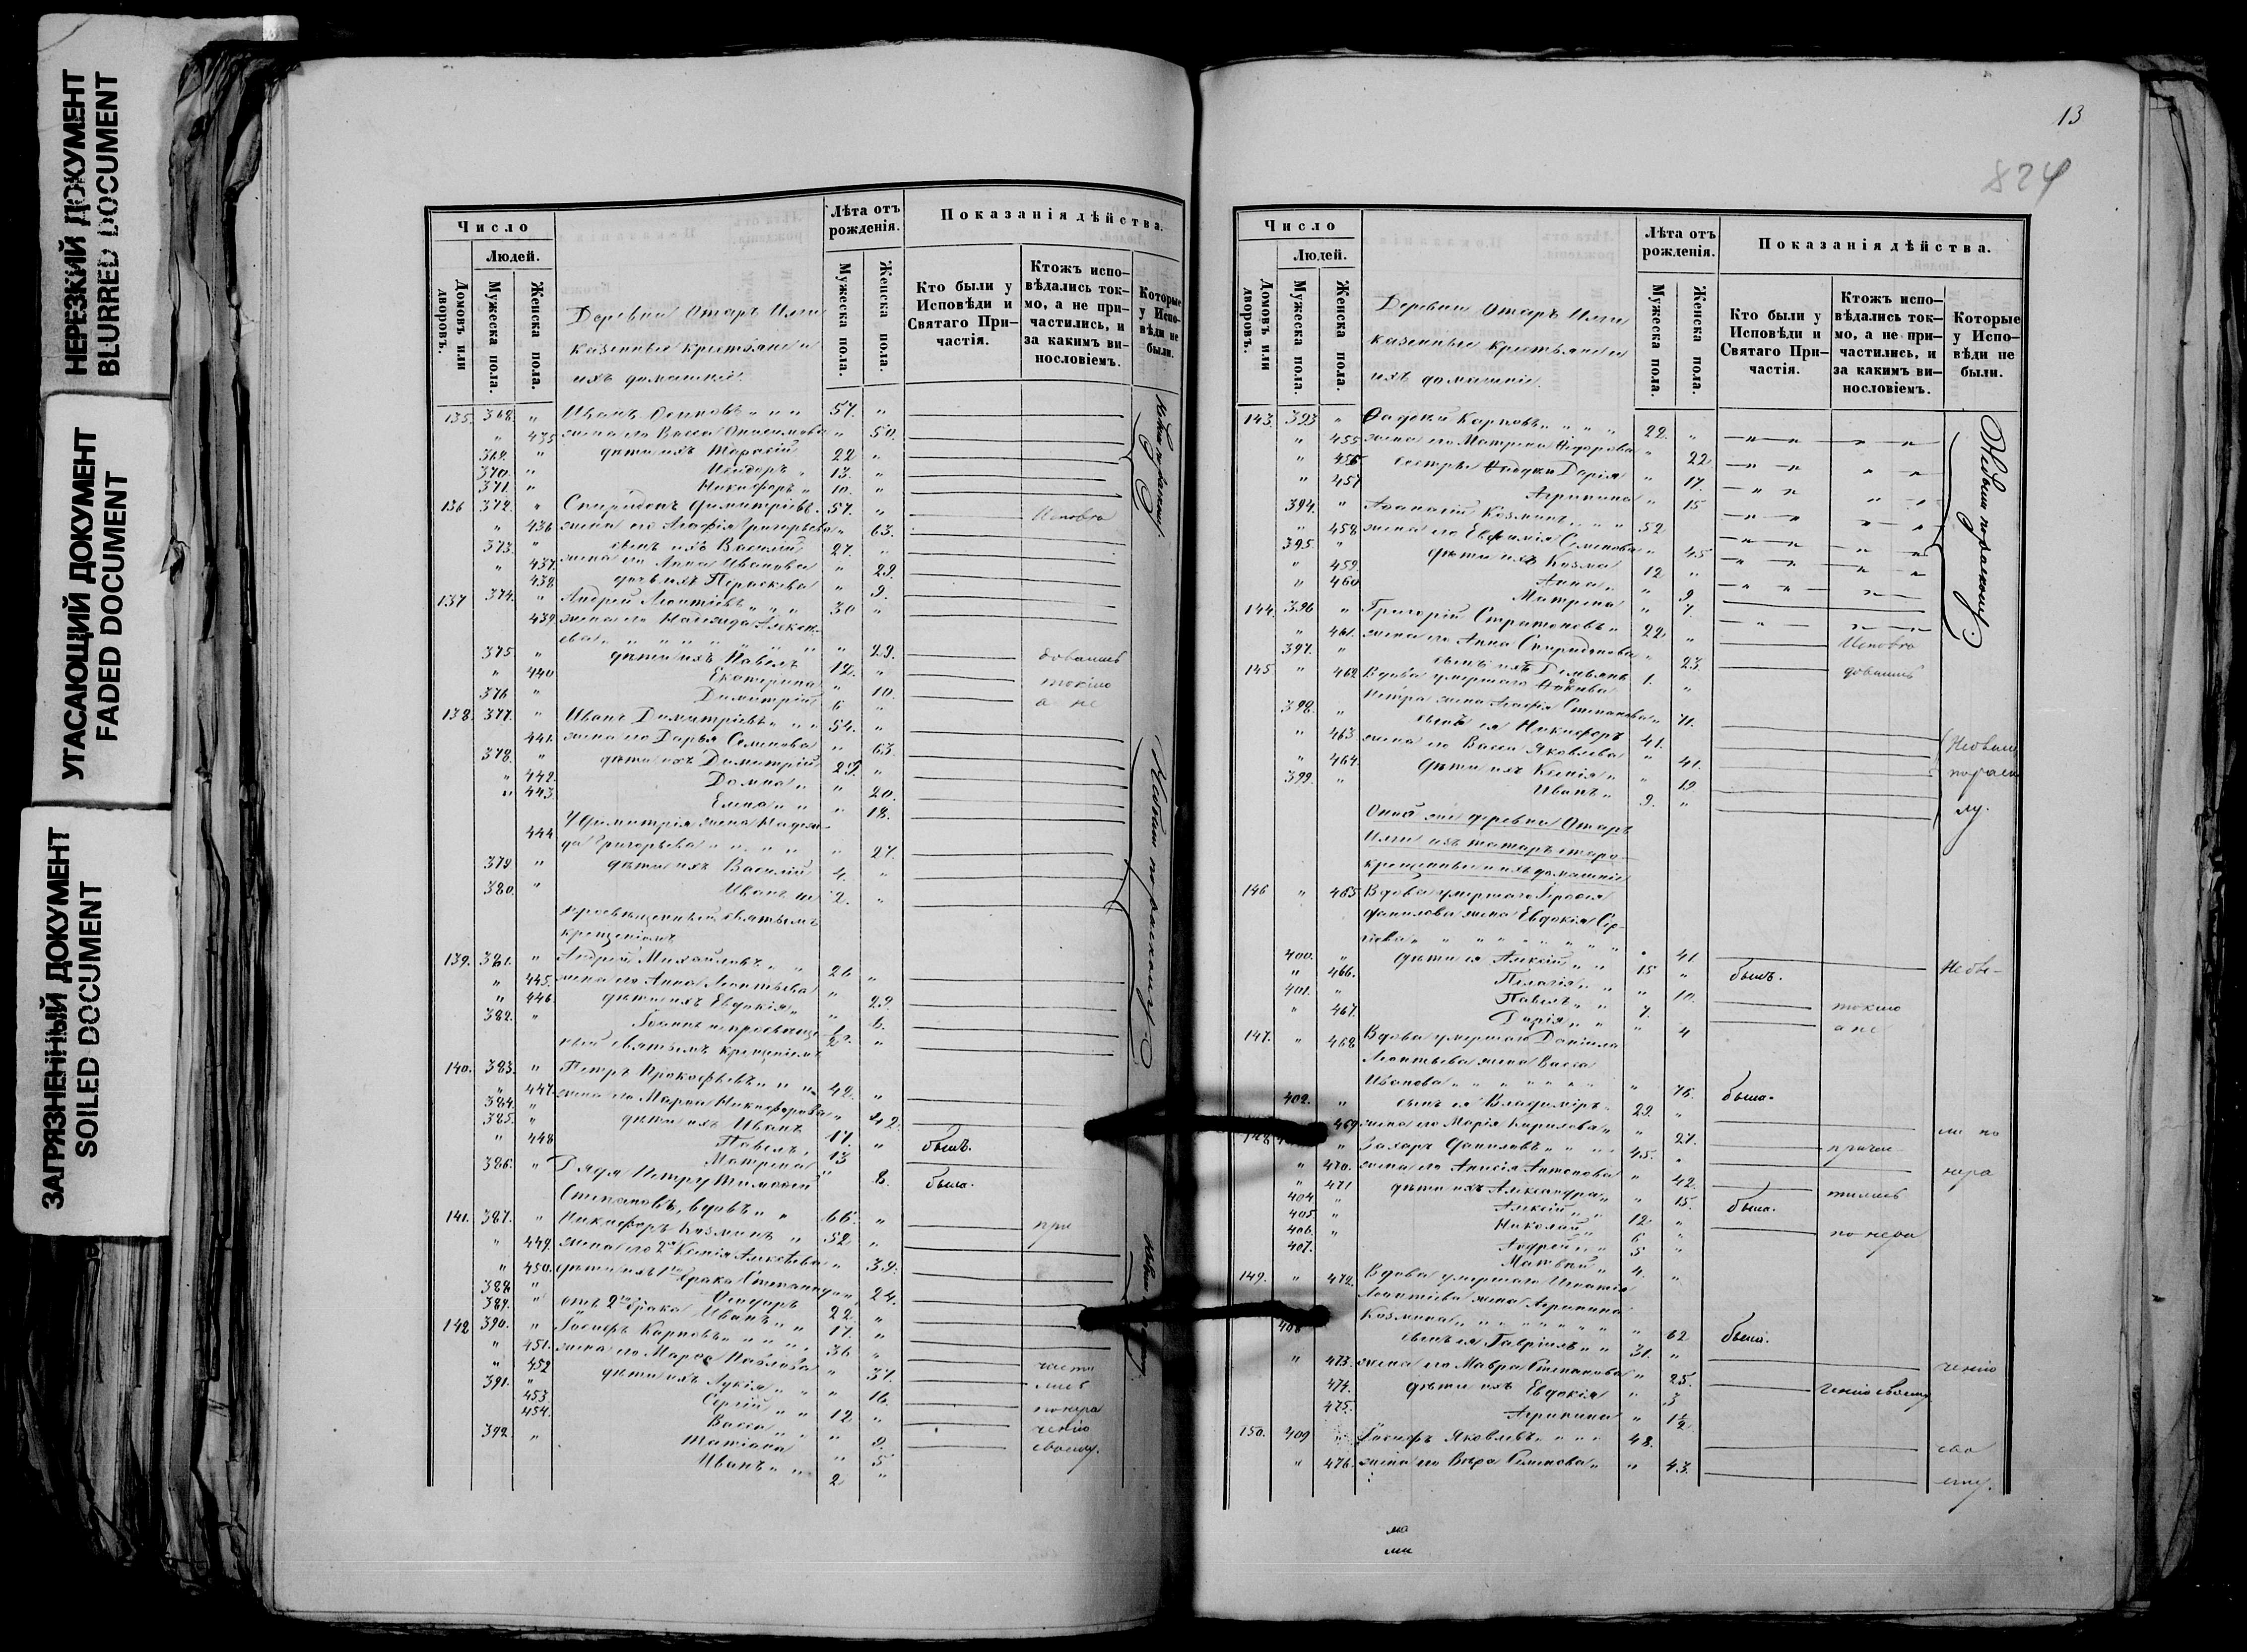 НЕРЕЗКИЙ ДОКУМЕНТ
BLURRED DOCUMENT
УГАСАЮЩИЙ ДОКУМЕНТ
FADED DOCUMENT
ЗАГРЯЗНЕННЫЙ ДОКУМЕНТ
SOILED DOCUMENT
Число
Людей.
Домовъ или дворовъ.
Мужеска пола.
Женска пола.
Деревни Отаръ Илги
казенные крестьяне и
ихъ домашніе.
Лѣта отъ рожденія.
Мужеска пола.
Женска пола.
Показанія дѣйства.
Кто были у Исповѣди и Святаго При-частія.
Ктожъ испо-вѣдались ток-мо, а не при-частились, и за какимъ ви-нословіемъ.
Которые у Испо-вѣди не были.
135. 368. " Иванъ Осиповъ " " " 57. "
" 435 жена его Васса Онисимова " 50.
369. " дѣти ихъ Тарасій 22 "
370. " Исидоръ " 13. "
371. " Никифоръ " 10. "
136 372. " Спиридонъ Димитріевъ. 57. " Исповѣ
" 436 жена его Агафія Григорьева " 63.
373. " сынъ ихъ Василій 27. "
" 437. жена его Анна Иванова " 29.
438. дочь ихъ Параскева " 9.
137 374. " Андрей Леонтіевъ " " " 30 "
439. жена его Надежда Алексѣ-
ева " " " " " " 29.
375. " дѣти ихъ Павелъ 12. " довались
" 440 Екатерина " 10. токмо
376 " Димитрій 6 " а не
138. 377. " Иванъ Димитріевъ " " " 54. "
441. жена его Дарья Семенова " 63
378. " дѣти ихъ Димитрій 29. "
" 442. Домна " " 20.
" 443. Елена " " " 18.
У Димитрія жена Надеж-
444 да Григорьева " " " " 27.
379 " дѣти ихъ Василій 4. "
380. " Иванъ не 2. "
просвѣщенный святымъ
крещеніемъ
139. 381. " Андрей Михайловъ " " 26 "
" 445. жена его Анна Леонтьева " 29.
" 446 дѣти ихъ Евдокія " " 6.
382. " Іоаннъ не просвѣще-
ный святымъ крещеніемъ
140. 383. " Петръ Прокофьевъ " " " 42. "
" 447. жена его Марѳа Никифорова " 42.
384. " дѣти ихъ Иванъ 17. " былъ.
385. " Павелъ " 13
" 448 Матрена " 8. была.
386. " Дядя Петру Тимоѳей
Степановъ, вдовъ " " 66. "
141. 387. " Никифоръ Козминъ " 52 " при
" 449. жена его 2я Ксенія Алексѣева " 39.
" 450. дѣти ихъ 1го брака Степанида " " 24.
388. " Ѳедоръ 22. "
389. " отъ 2го брака Иванъ " " 17. "
142 390. " Іосифъ Карповъ " " " 36 "
" 451. жена его Марѳа Павлова " 37. части
" 452 дѣти ихъ Лукія " " " 16. лись
391. " Сергій " " 12 " по нера
453. Васса " " " 9. ченію
454. Татіана " 5 своему.
392. " Иванъ " " 2 "
Небыли по раскому.
13
824
Число
Людей.
Домовъ или дворовъ.
Мужеска пола.
Женска пола.
Деревни Отаръ Илги
казенные крестьяне и
ихъ домашніе.
Лѣта отъ рожденія.
Мужеска пола.
Женска пола.
Показанія дѣйства.
Кто были у Исповѣди и Святаго При-частія.
Ктожъ испо-вѣдались ток-мо, а не при-частились, и за какимъ ви-нословіемъ.
Которые у Испо-вѣди не были.
143. 393 " Ѳадѣй Карповъ " " " " 22. "
" 455 жена его Матрена Ѳедорова " 22
" 456 сестры Ѳадѣю Дарія " 17.
" 457 Агрипина " 15
394. " Аѳанасій Козминъ " " " 52
" 458 жена его Евфимія Семенова " 45
395. " дѣти ихъ Козма 12 "
" 459. Анна " " 9
" 460 Матрена " 7.
144. 396 " Григорій Стратоновъ " 22. "
" 461. жена его Анна Спиридонова " 23. Исповѣ
397. " сынъ ихъ Демьянъ 1. " довались
145. " 462 Вдова умершаго
Петра жена Агафія Степанова " 71.
398. " сынъ ея Никифоръ 41.
" 463 жена его Васса Яковлева " 41.
" 464. дѣти ихъ Ксенія " " 19
399. " Иванъ " 9. "
Оной же деревни Отаръ
Илги изъ татаръ старо-
крещенные и ихъ домашніе
146 " 465 Вдова умершаго
Данилова жена Евдокія Сер-
гіева " " " " " " " 41
400. " дѣти ея Алексій " " 15 " былъ. Небы-
" 466. Пелагія " " " 10.
401. " Павелъ " " 7. токмо
" 467. Дарія " " " 4 а не
147. " 468 Вдова умершаго Даніила
Леонтьева жена Васса
Иванова " " " " " " " 76. была.
402. " сынъ ея Владиміръ " 29. "
469 жена его Марія Кирилова " " 27. ли по
148 " Захаръ Даниловъ " " " 45. " причас-
" 470. жена его Анисія Антонова " 42. нера
" 471 дѣти ихъ Александра " " 15. была. тились
404 " Алексій " " 12. "
405. " Николай " 6 " по нера
406. " Андрей " " 5 "
407. Матвѣй " 4. "
149. " 472. Вдова умершаго Игнатія
Леонтіева жена Агрипина
Козмина " " " " " " 62 была.
408 сынъ ея Гавріилъ " " 31. "
" 473. жена его Мавра Степанова " 25. ченію
474. дѣти ихъ Евдокія " 3 ченію своему
475. Агрипина " 1½
150. 409 " Іосифъ Яковлевъ " " " 48. сво
" 476. жена его Вѣра Семенова " " 43. ему.
Небыли по раскому.
Небыли
по раско
му.